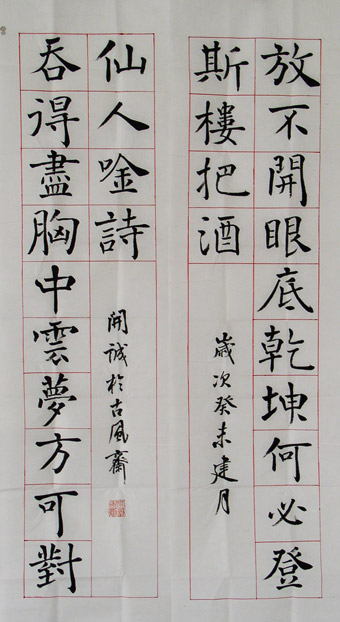 放不開眼底乾坤何必登
斯樓把酒
歲次癸未建月
吞得盡胸中雲夢方可對
仙人唫詩
開誠於古風齋